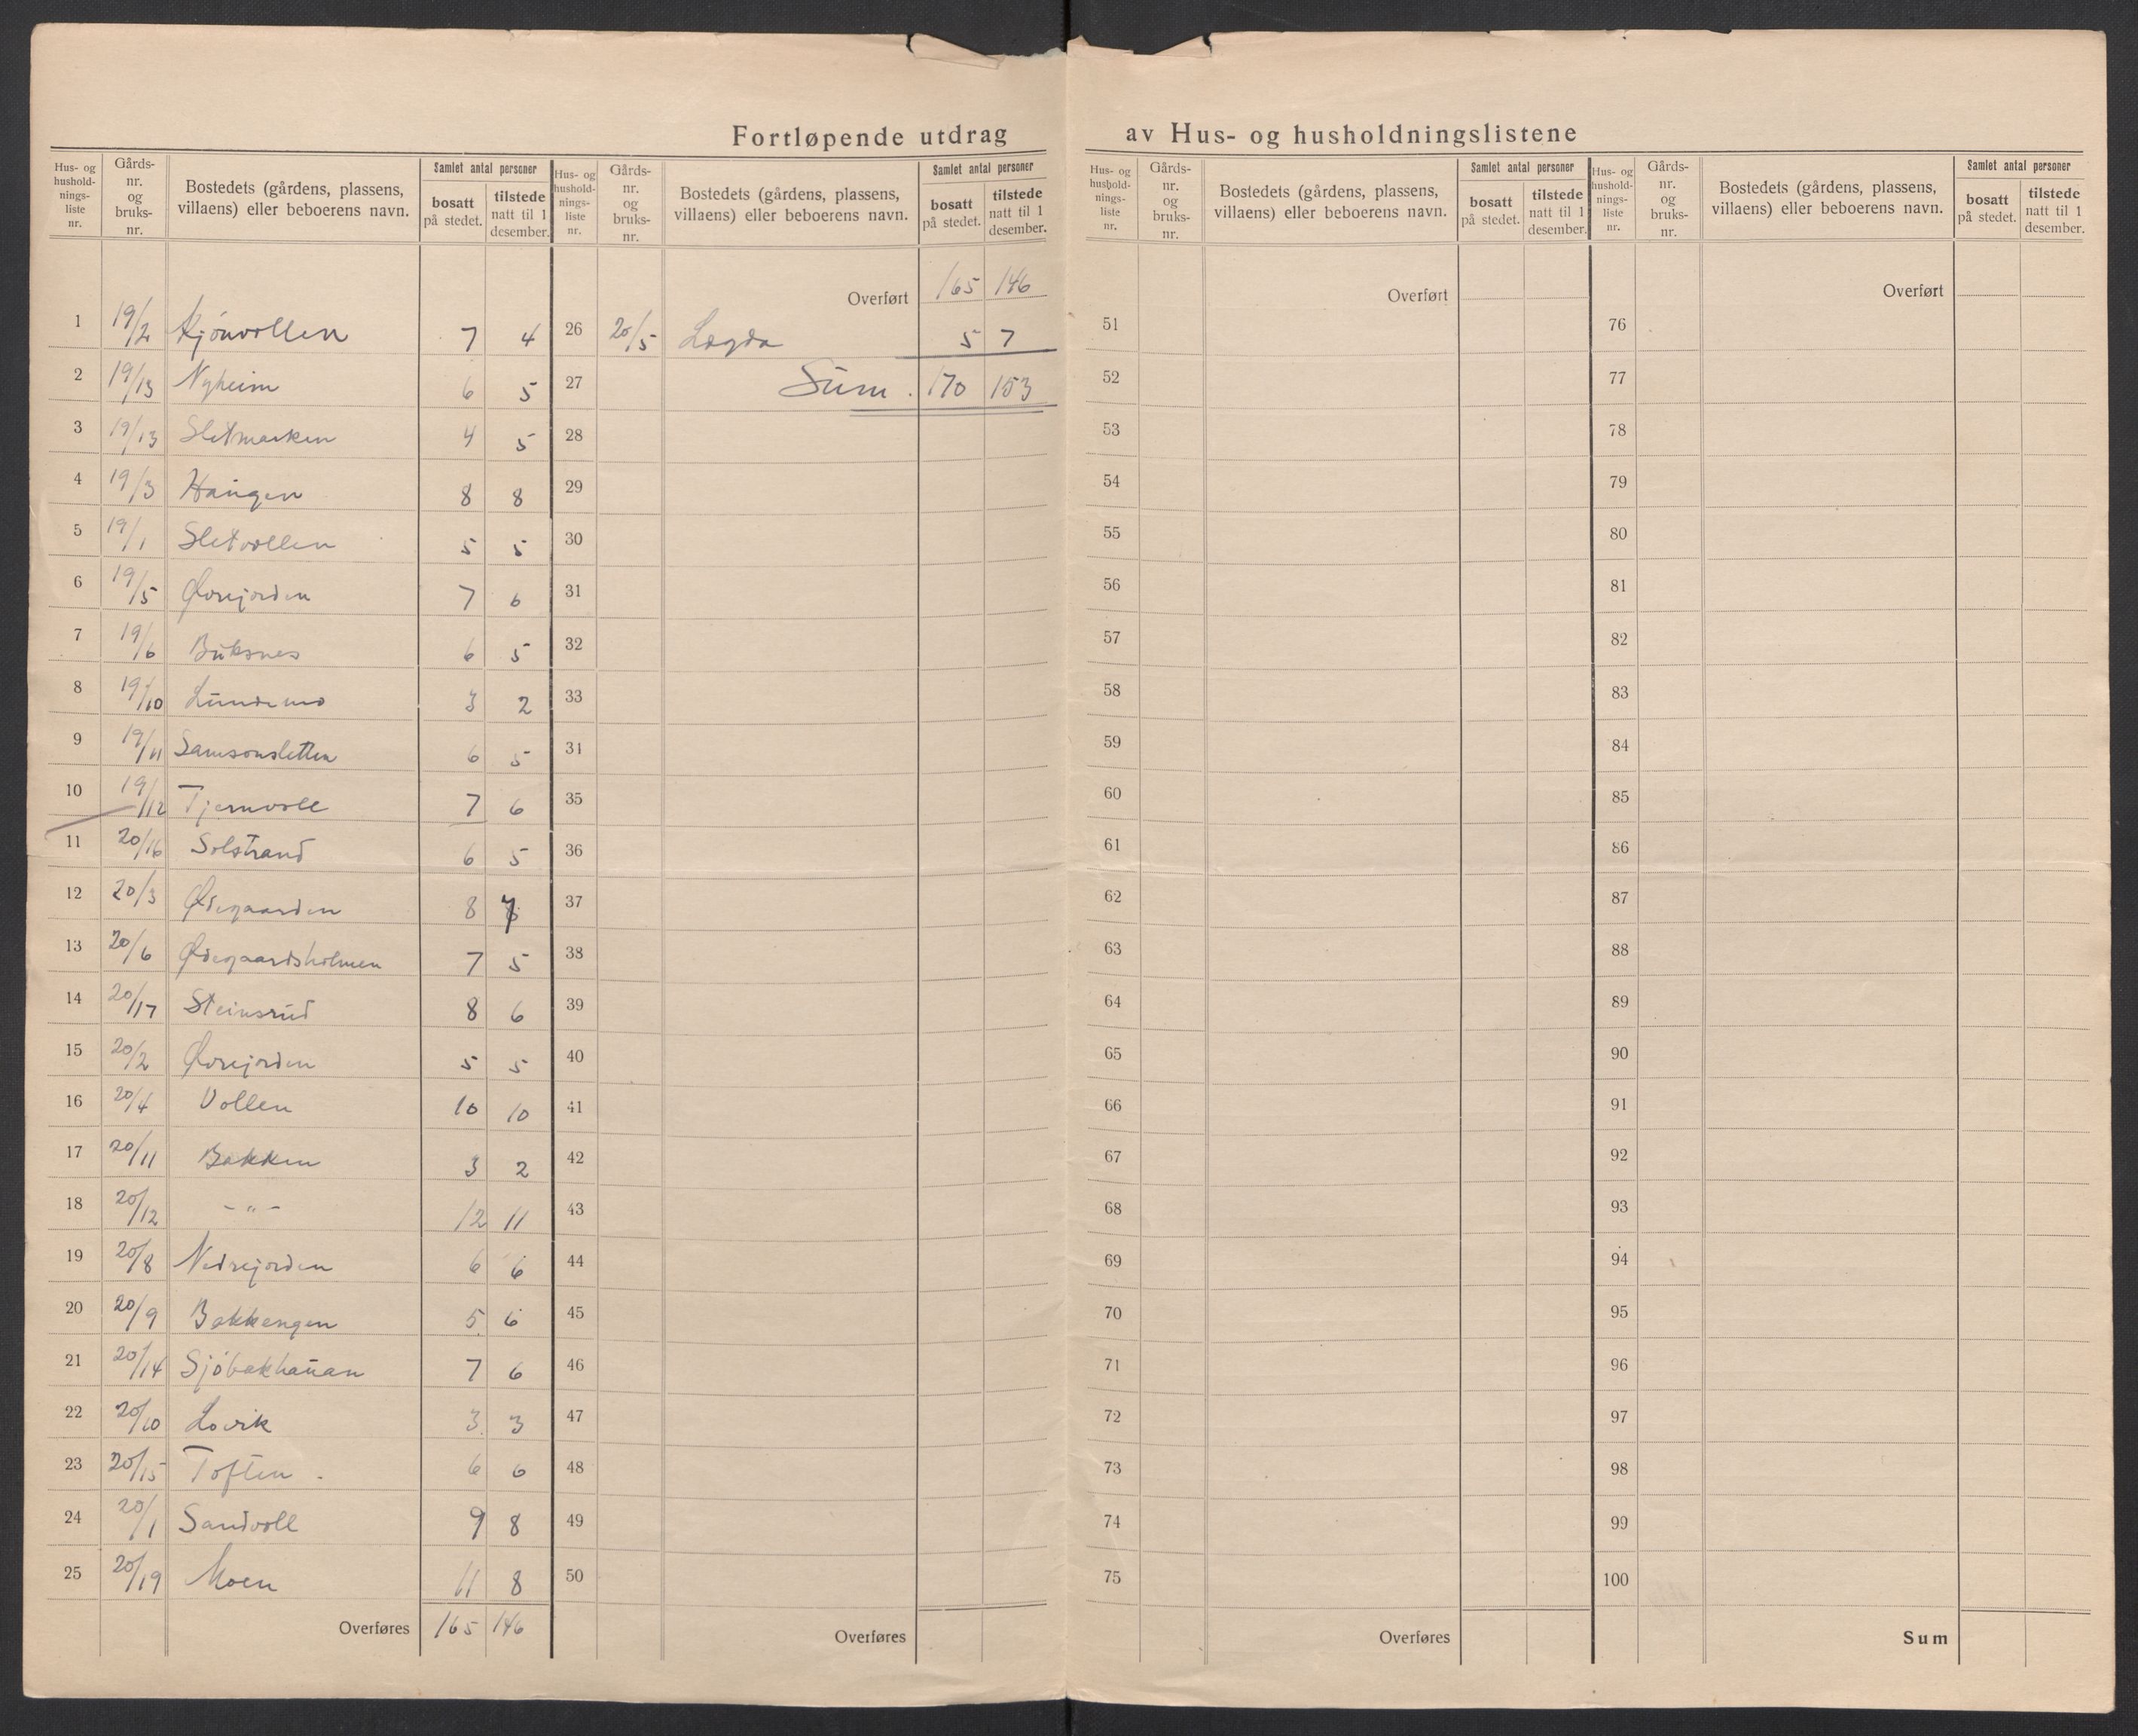 Fortløpende utdrag av Hus- og husholdningslistene
Hus- og hushold-nings-liste nr. | Gårds-nr. og bruks-nr. | Bostedets (gårdens, plassens, villaens) eller beboerens navn. | Samlet antal personer | bosatt på stedet. | tilstede natt til 1 desember.
1 19/2 Kjönvollen 7 4
2 19/13 Nyheim 6 5
3 19/13 Sletmarken 4 5
4 19/3 Haugen 8 8
5 19/1 Sletvollen 5 5
6 19/5 Øvrejorden 7 6
7 19/6 Buksnes 6 5
8 19/10 Lundemo 3 2
9 19/11 Samsonsletten 6 5
10 19/12 Tjernvoll 7 6
11 20/16 Solstrand 6 5
12 20/3 Ødegaarden 8 7
13 20/6 Ødegaardsholmen 7 5
14 20/17 Steinsrud 8 6
15 20/2 Øvrejorden 5 5
16 20/4 Vollen 10 10
17 20/11 Bakken 3 2
18 20/12 -"- 12 11
19 20/8 Nedrejorden 6 6
20 20/9 Bakkengen 5 6
21 20/14 Sjöbakhauan 7 6
22 20/10 Lovik 3 3
23 20/15 Toften 6 6
24 20/1 Sandvoll 9 8
25 20/19 Moen 11 8
Overføres 165 146
Hus- og hushold-nings-liste nr. | Gårds-nr. og bruks-nr. | Bostedets (gårdens, plassens, villaens) eller beboerens navn. | Samlet antal personer | bosatt på stedet. | tilstede natt til 1 desember.
Overført 165 146
26 20/5 Lægda 5 7
27 Sum. 170 153
28
29
30
31
32
33
31
35
36
37
38
39
40
41
42
43
44
45
46
47
48
49
50
Overføres
Hus- og hushold-nings-liste nr. | Gårds-nr. og bruks-nr. | Bostedets (gårdens, plassens, villaens) eller beboerens navn. | Samlet antal personer | bosatt på stedet. | tilstede natt til 1 desember.
Overført
51
52
53
54
55
56
57
58
59
60
61
62
63
64
65
66
67
68
69
70
71
72
73
74
75
Overføres
Hus- og hushold-nings-liste nr. | Gårds-nr. og bruks-nr. | Bostedets (gårdens, plassens, villaens) eller beboerens navn. | Samlet antal personer | bosatt på stedet. | tilstede natt til 1 desember.
Overført
76
77
78
79
80
81
82
83
84
85
86
87
88
89
90
91
92
93
94
95
96
97
98
99
100
Sum